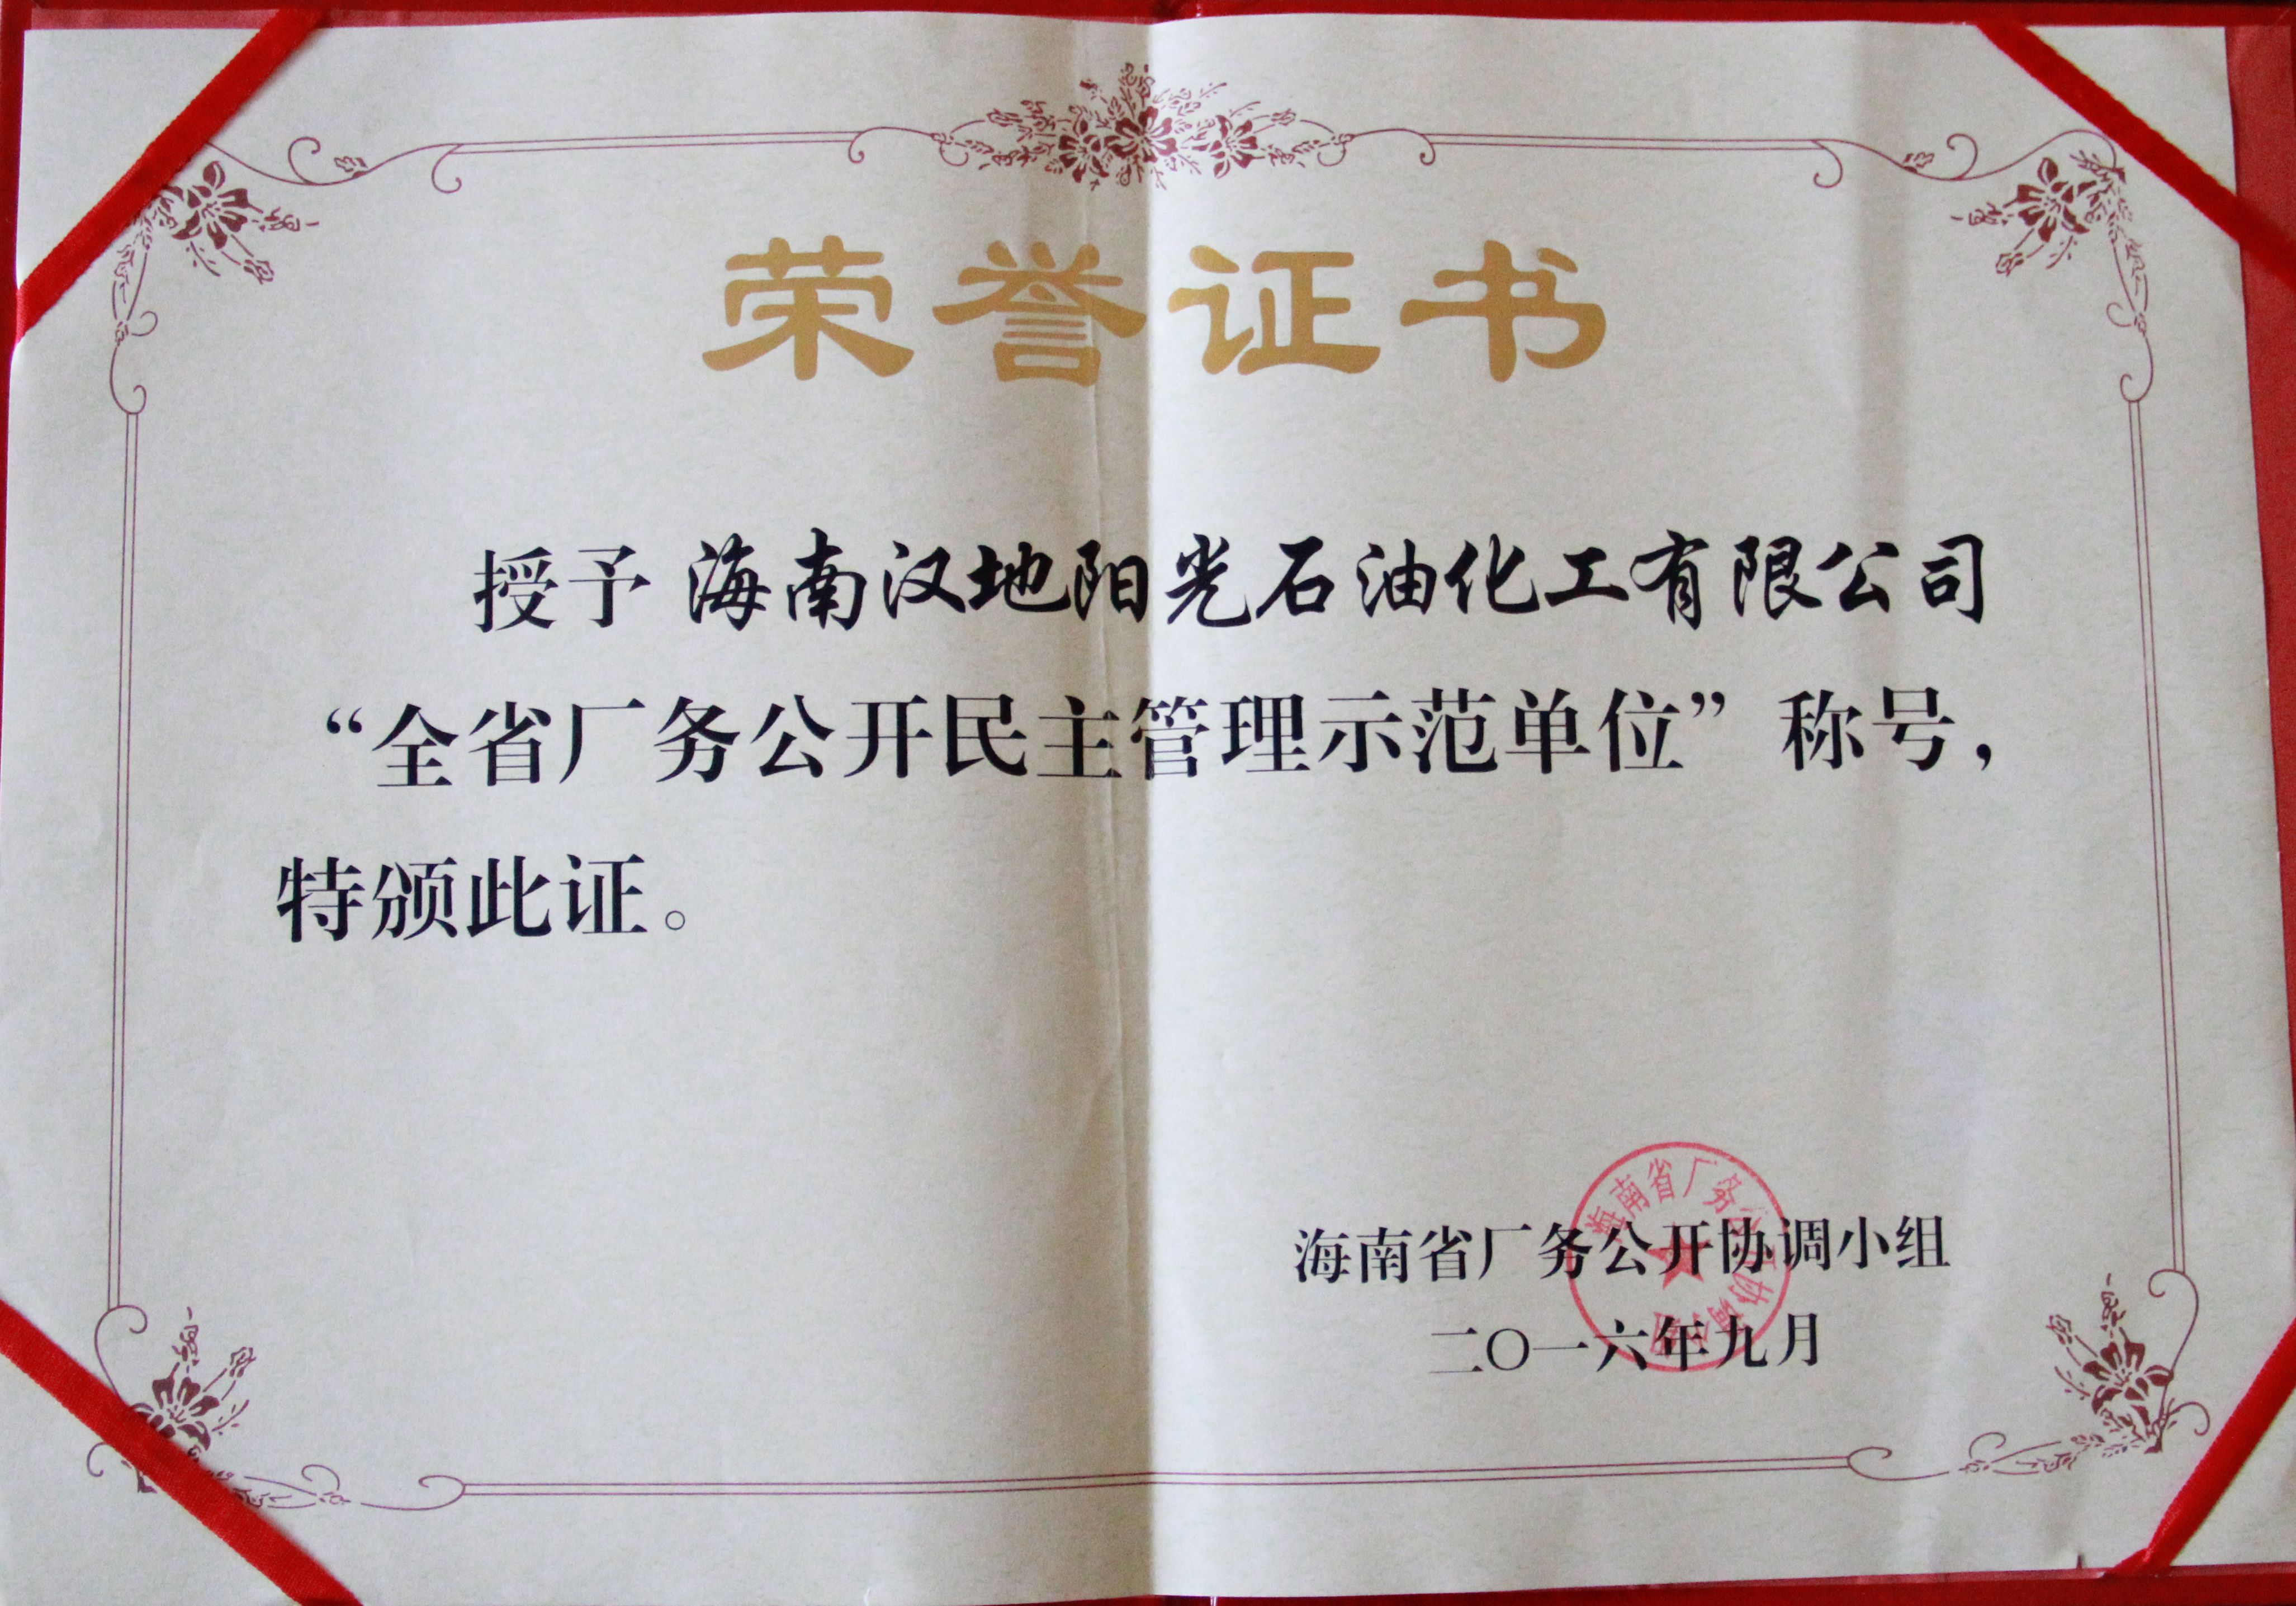 荣誉证书
授予 海南汉地阳光石油化工有限公司
“全省厂务公开民主管理示范单位”称号，
特颁此证。
海南省厂务公开协调小组
二〇一六年九月
海南省厂务公开协调小组